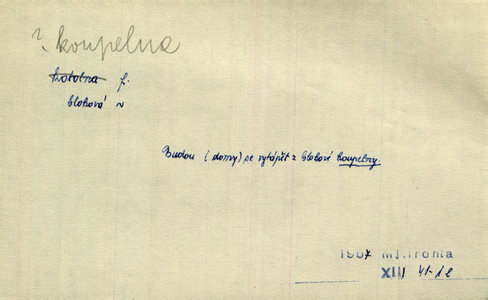 ? koupelna
kotelna f.
bloková ~
Budou (domy) se vytápět z blokové koupelny.
1957 Ml.fronta
XIII 41-1c